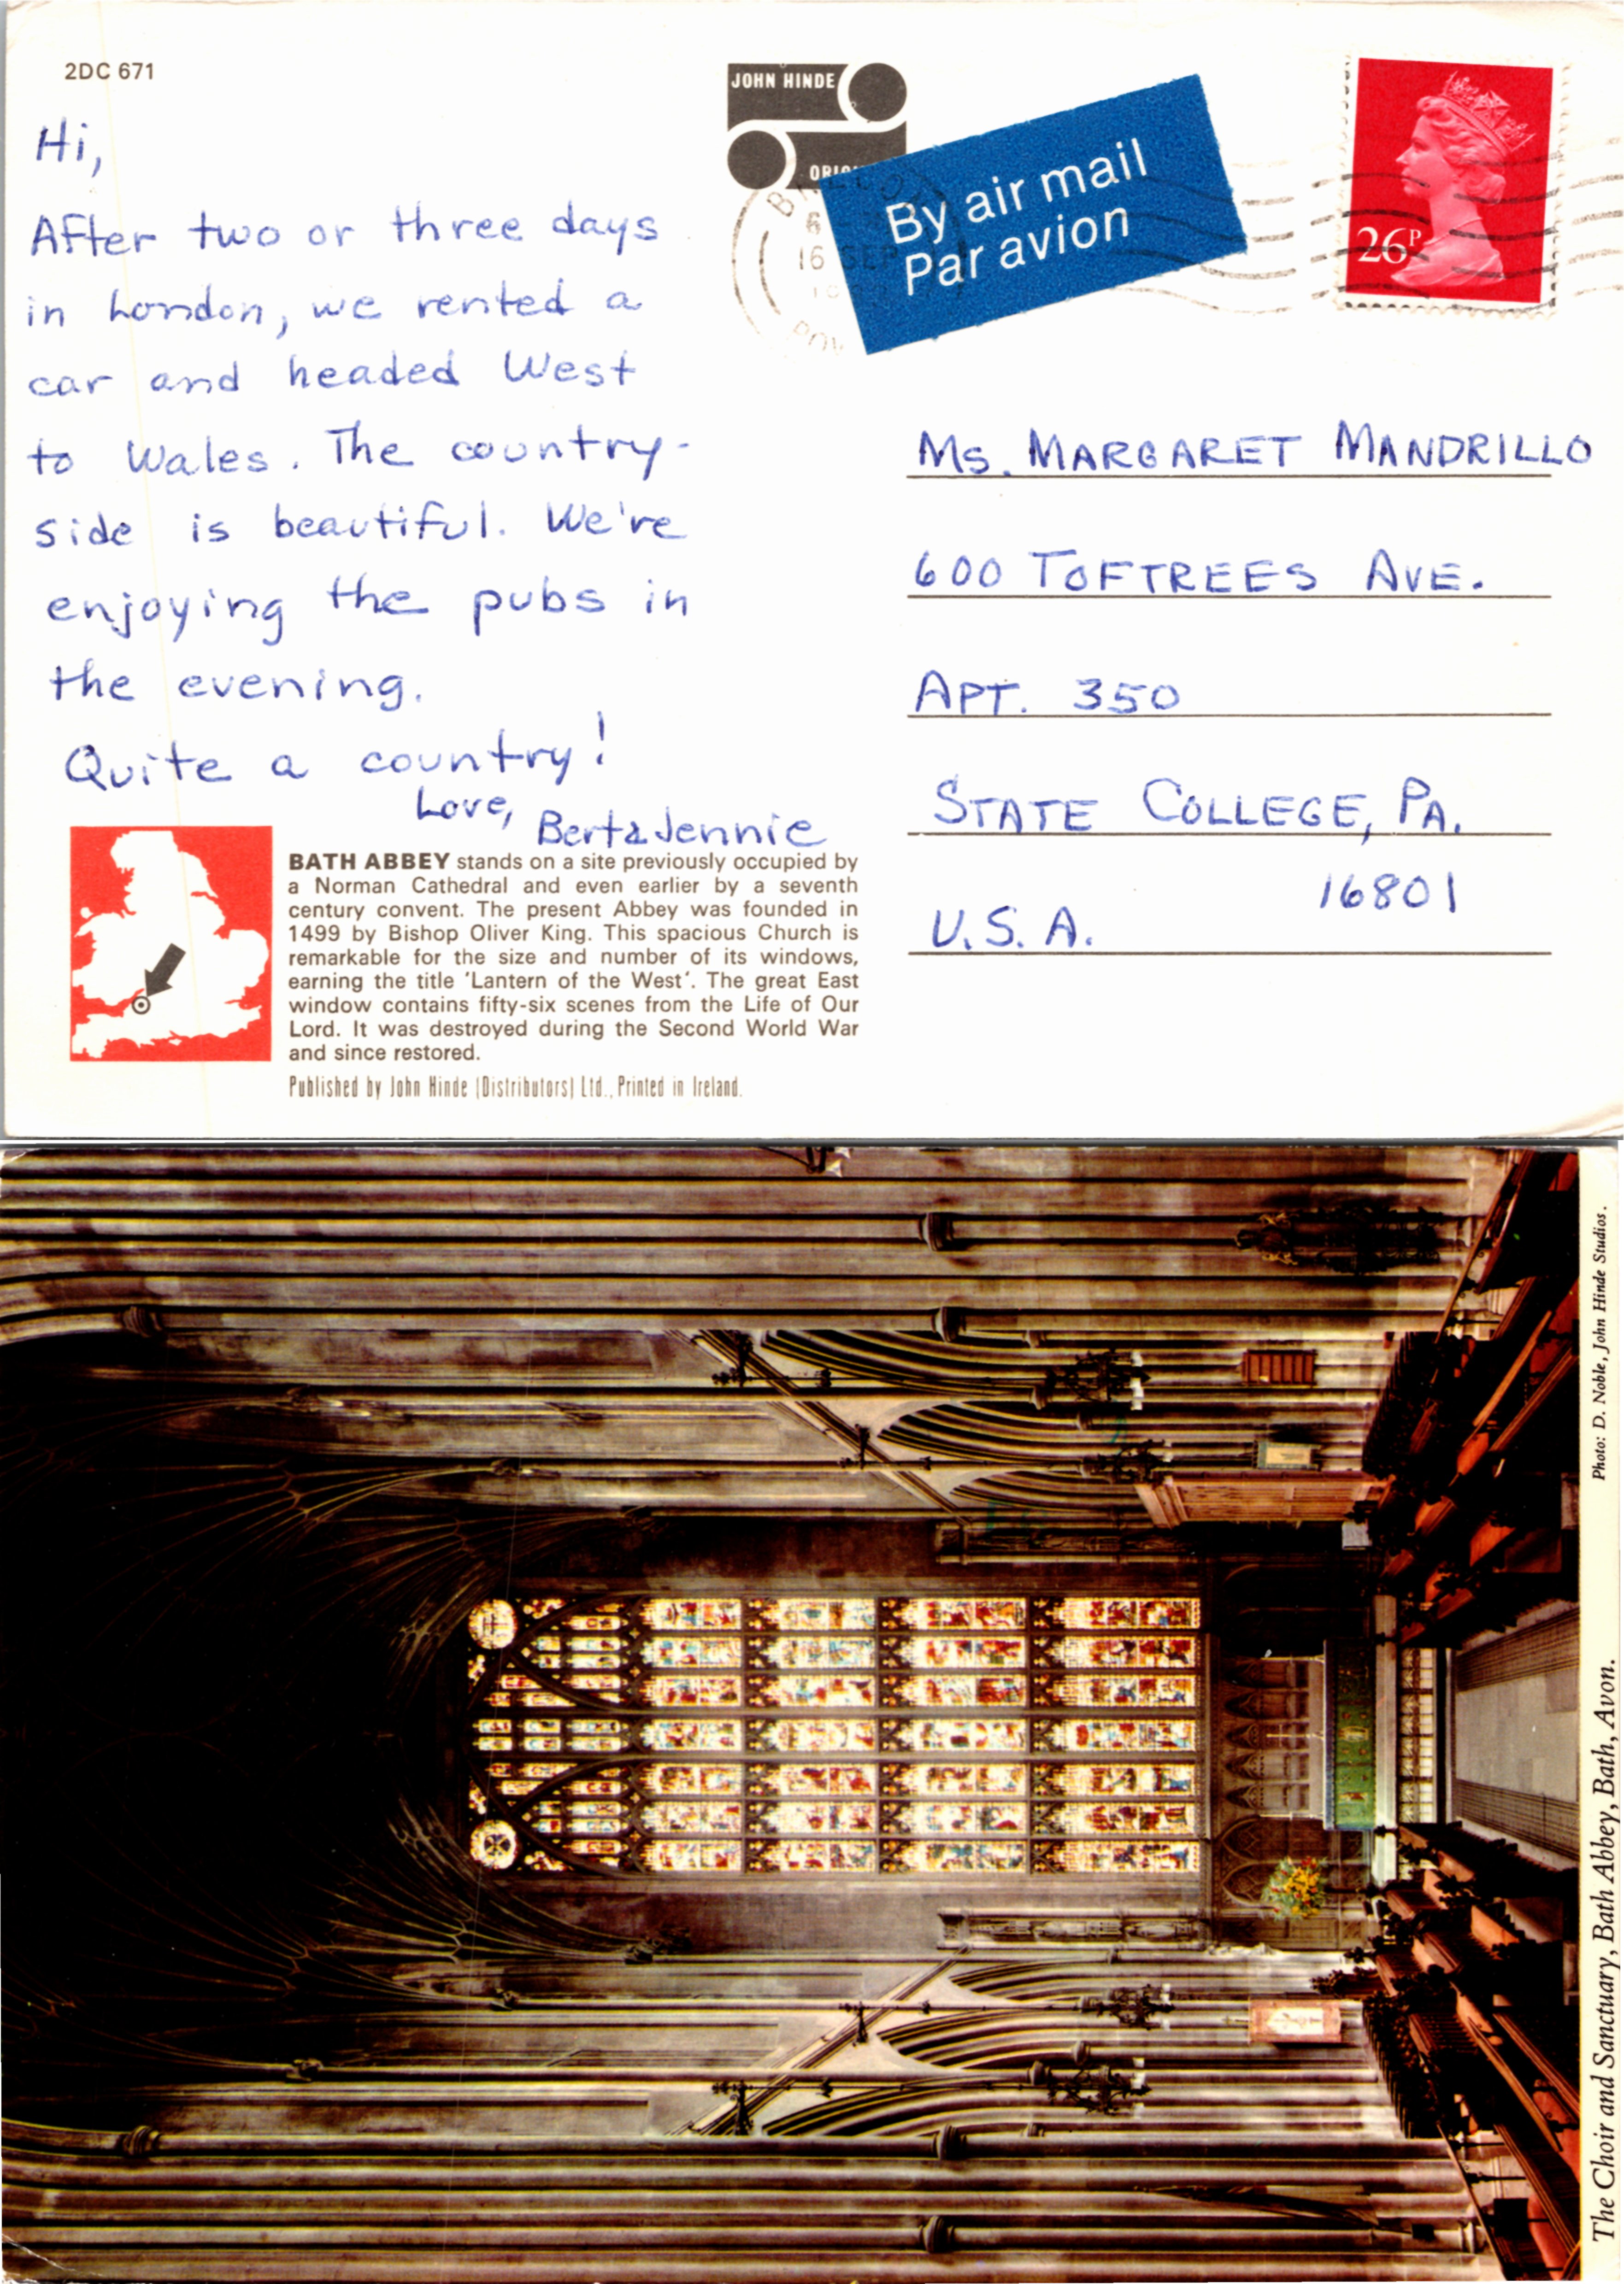 2DC 671
Hi,
After two or three days
in London, we rented a
car and headed West
to Wales. The country-
side is beautiful. We're
enjoying the pubs in
the evening.
Quite a country!
Love,
Bert & Jennie
BATH ABBEY stands on a site previously occupied by
a Norman Cathedral and even earlier by a seventh
century convent. The present Abbey was founded in
1499 by Bishop Oliver King. This spacious Church is
remarkable for the size and number of its windows,
earning the title 'Lantern of the West'. The great East
window contains fifty-six scenes from the Life of Our
Lord. It was destroyed during the Second World War
and since restored.
Published by John Hinde (Distributors) Ltd., Printed in Ireland.
JOHN HINDE
16 SEP
By air mail
Par avion
26P
Ms. MARGARET MANDRILLO
600 TOFTREES AVE.
APT. 350
STATE COLLEGE, PA.
16801
U.S.A.
The Choir and Sanctuary, Bath Abbey, Bath, Avon.
Photo: D. Noble, John Hinde Studios.